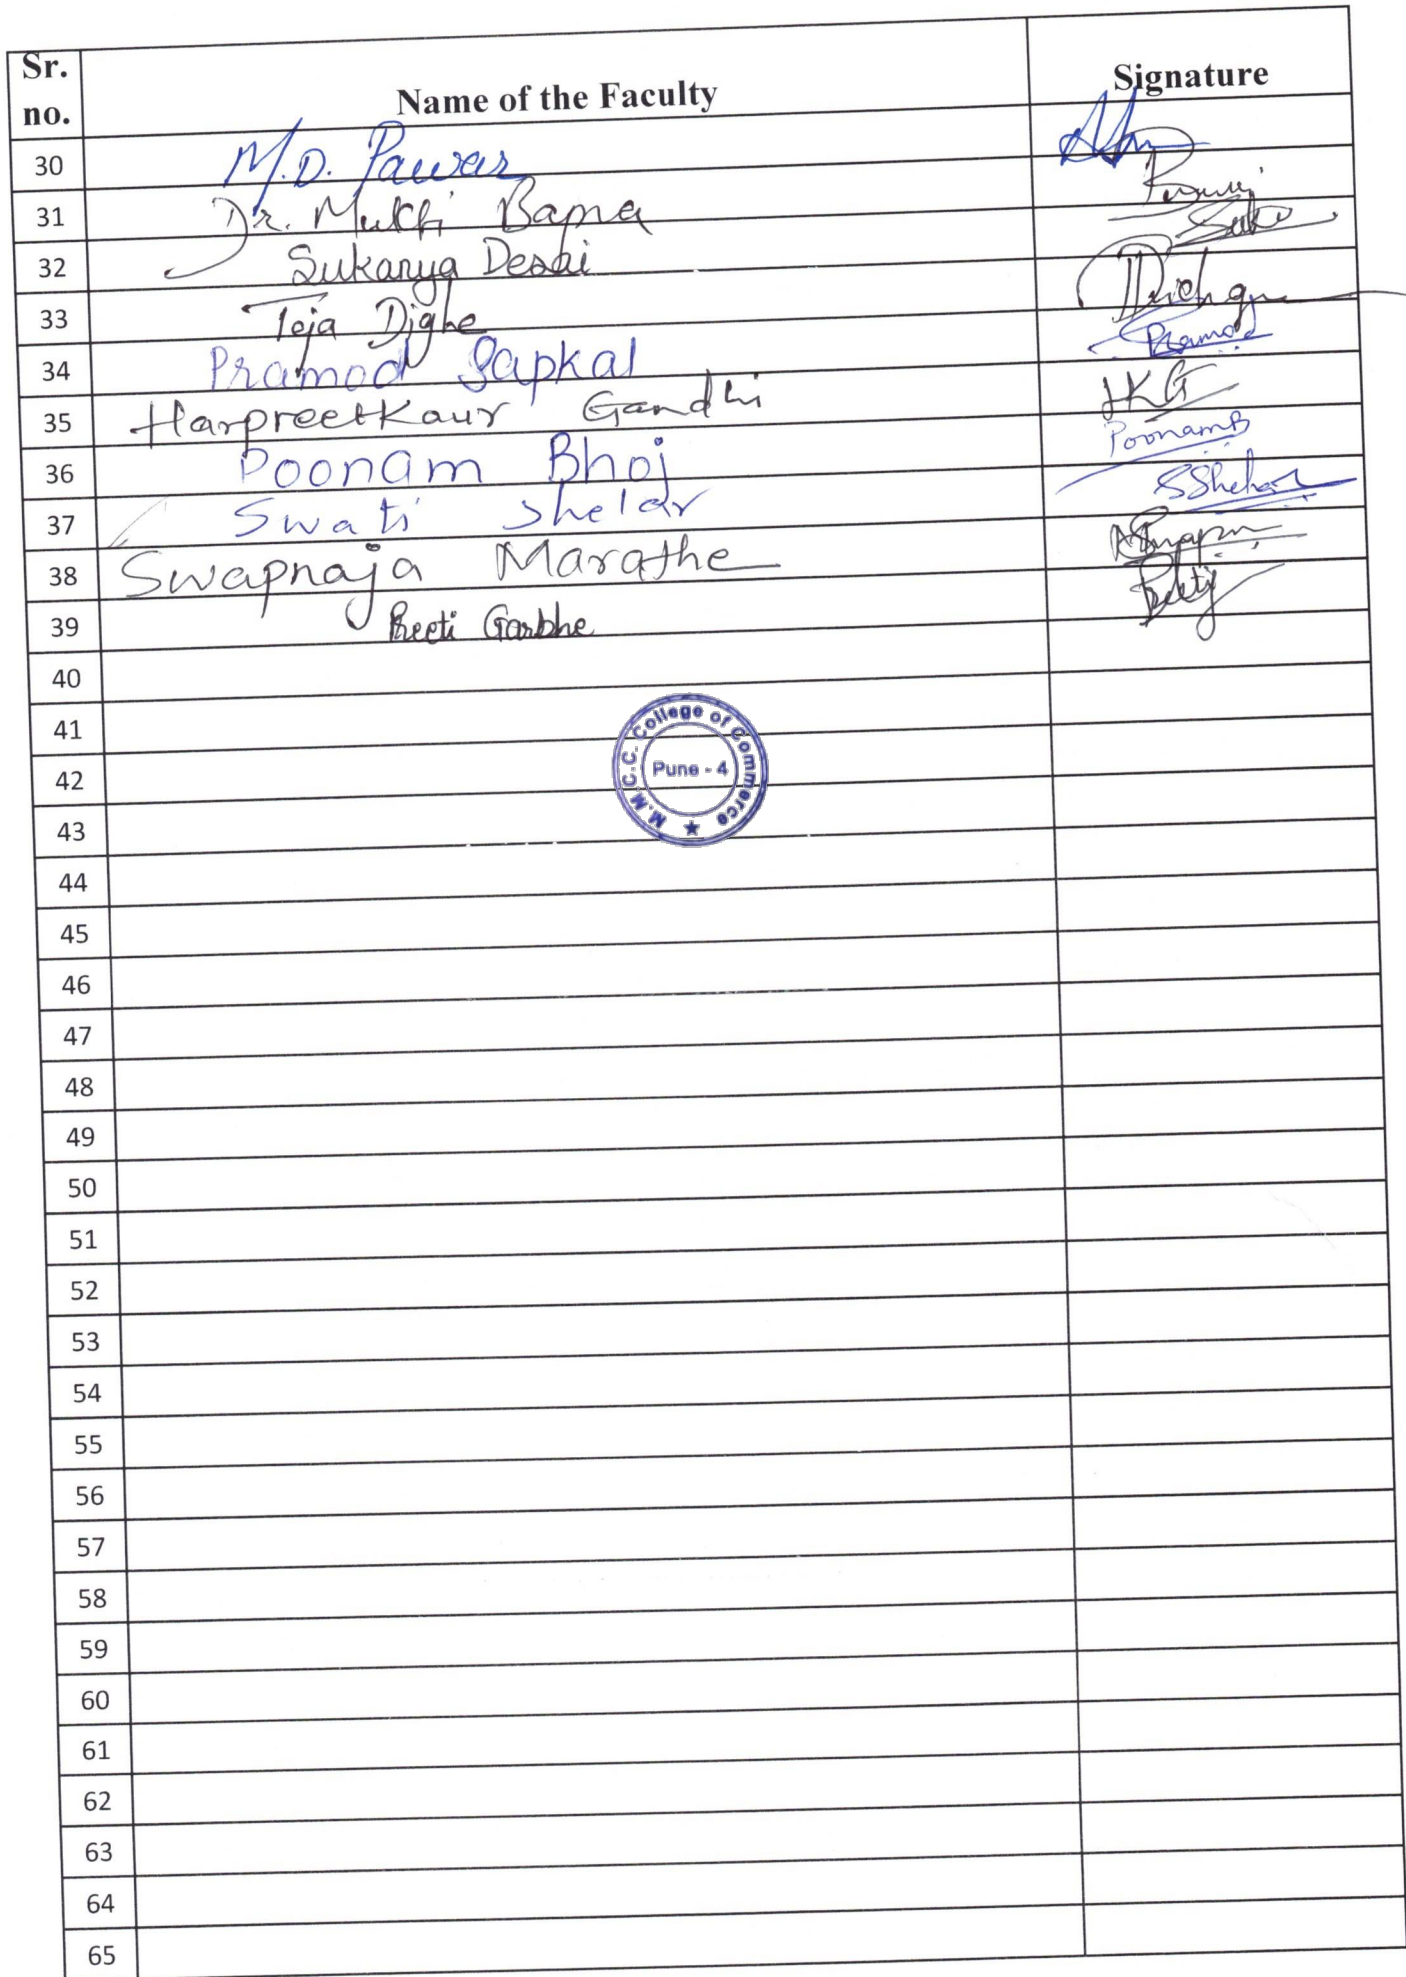 Sr. no. Name of the Faculty Signature
30 M.D. Pawar
31 Dr. Mukti Bapna
32 Sukanya Desai
33 Teja Dighe
34 Pramod Sapkal Pramod
35 Harpreetkaur Gandhi HKG
36 Poonam Bhoj PoonamB
37 Swati Shelar SShelar
38 Swapnaja Marathe
39 Preeti Garbhe Preeti
40
41
M.M.C.C. College of Commerce
42 Pune - 4
43
44
45
46
47
48
49
50
51
52
53
54
55
56
57
58
59
60
61
62
63
64
65